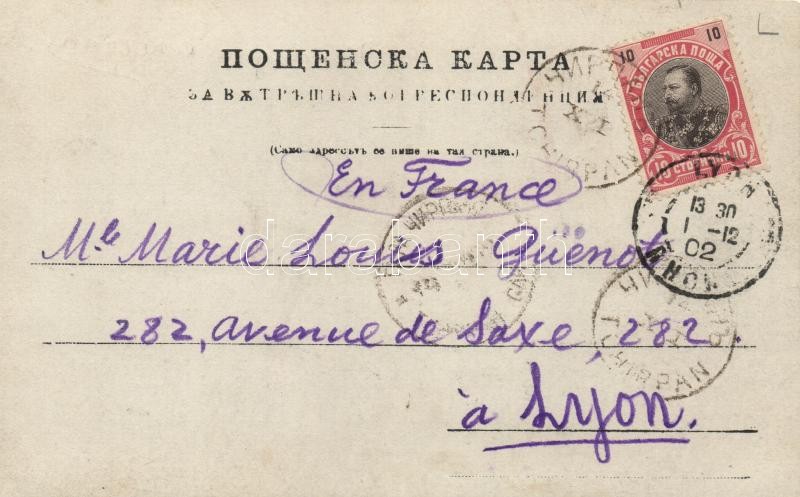 ПОЩЕНСКА КАРТА
ЗА ВѪТРѢШНА КОРРЕСПОНДЕНЦИЯ
(Само адрессътъ се пише на тая страна.)
10 10
БЪЛГАРСКА ПОЩА
10 СТОТИНКИ 10
En France
Mlle Marie Louise Güenot
282, avenue de Saxe, 282.
à Lyon.
TCHIRPAN
LYON
13 30
1 -12
02
TCHIRPAN
darabanth